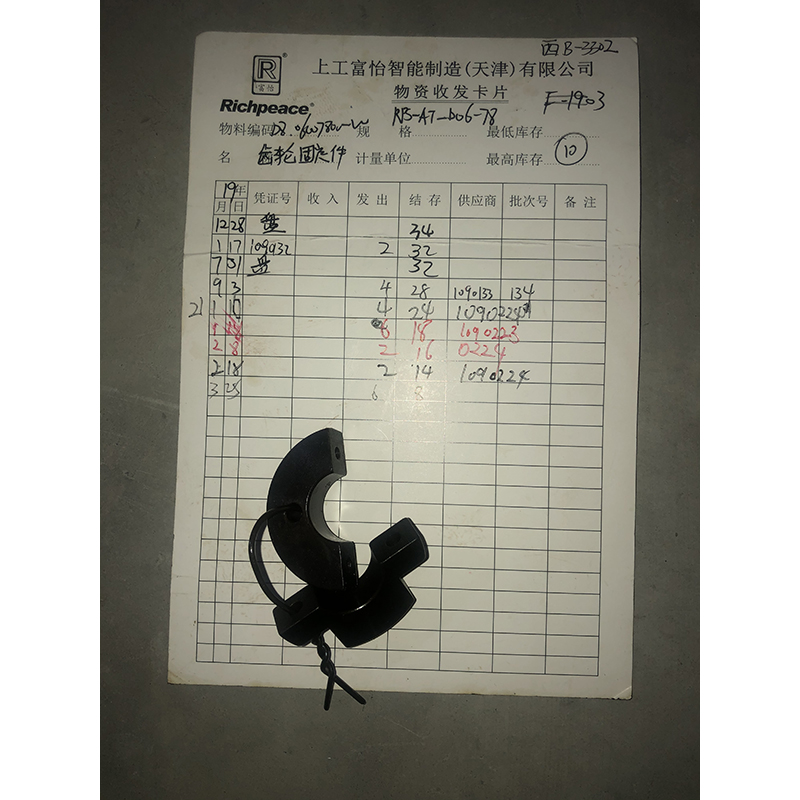 西B-3302
R 富怡 ® 上工富怡智能制造(天津)有限公司
Richpeace 物资收发卡片 F-1903
物料编码 规格 RB-A7-D06-78 最低库存
名 齿轮固定件 计量单位 最高库存 10
19年 凭证号 收入 发出 结存 供应商 批次号 备注
月 日
12 28 盘 34
1 17 109932 2 32
7 31 盘 32
9 3 4 28 1090133 134
21 1 10 4 24 1090224
1 6 18 1090223
2 8 2 16 0224
2 18 2 14 1090224
3 25 6 8